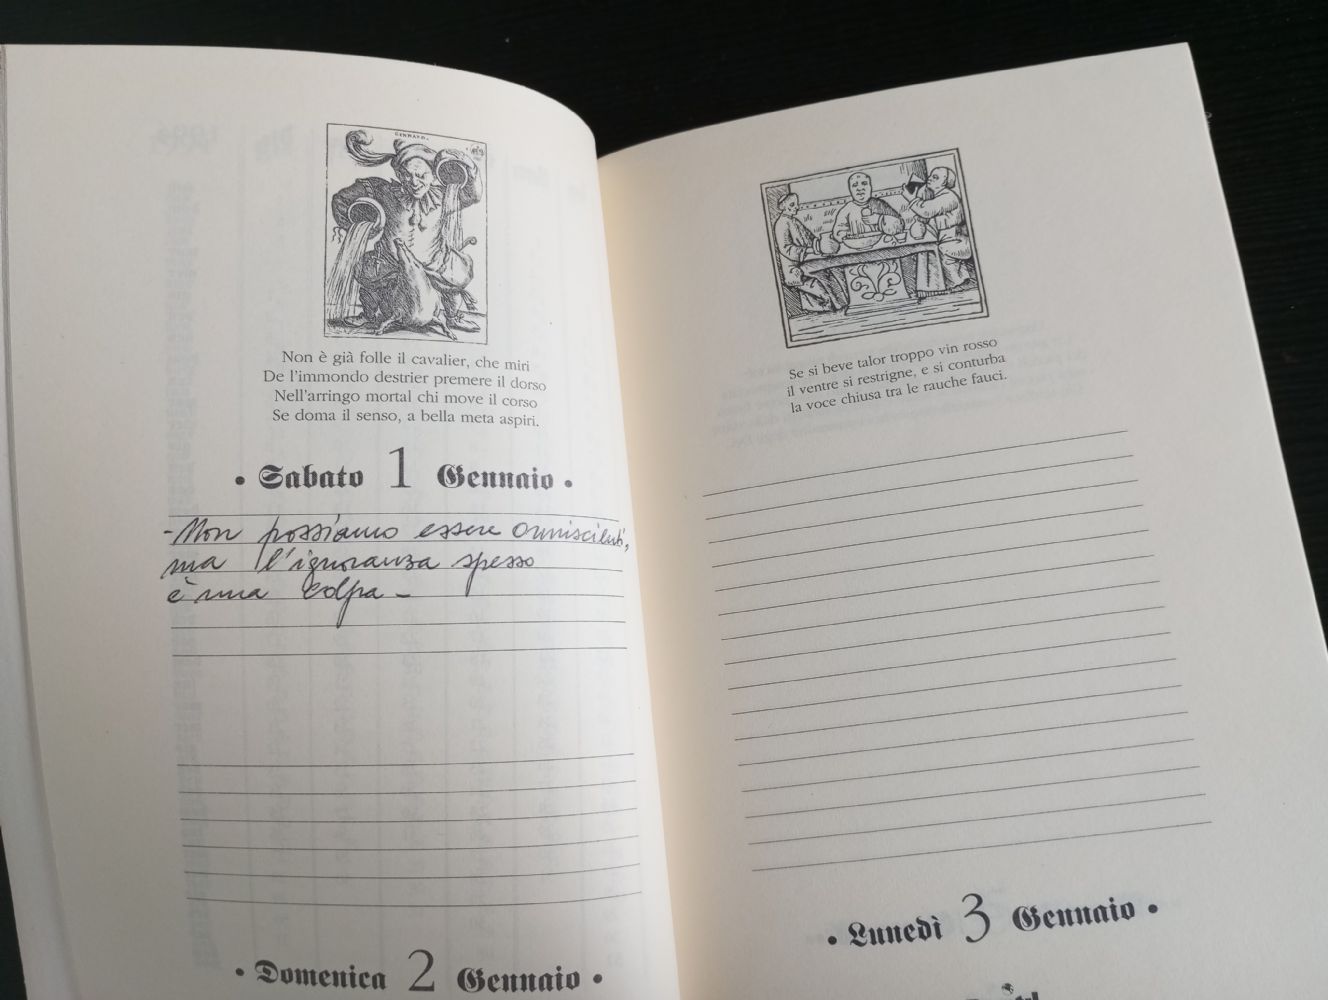 GENNARO.
Non è già folle il cavalier, che miri
De l'immondo destrier premere il dorso
Nell'arringo mortal chi move il corso
Se doma il senso, a bella meta aspiri.
• Sabato 1 Gennaio •
- Non possiamo essere onniscienti,
ma l'ignoranza spesso
è una colpa -
• Domenica 2 Gennaio •
Se si beve talor troppo vin rosso
il ventre si restrigne, e si conturba
la voce chiusa tra le rauche fauci.
• Lunedì 3 Gennaio •